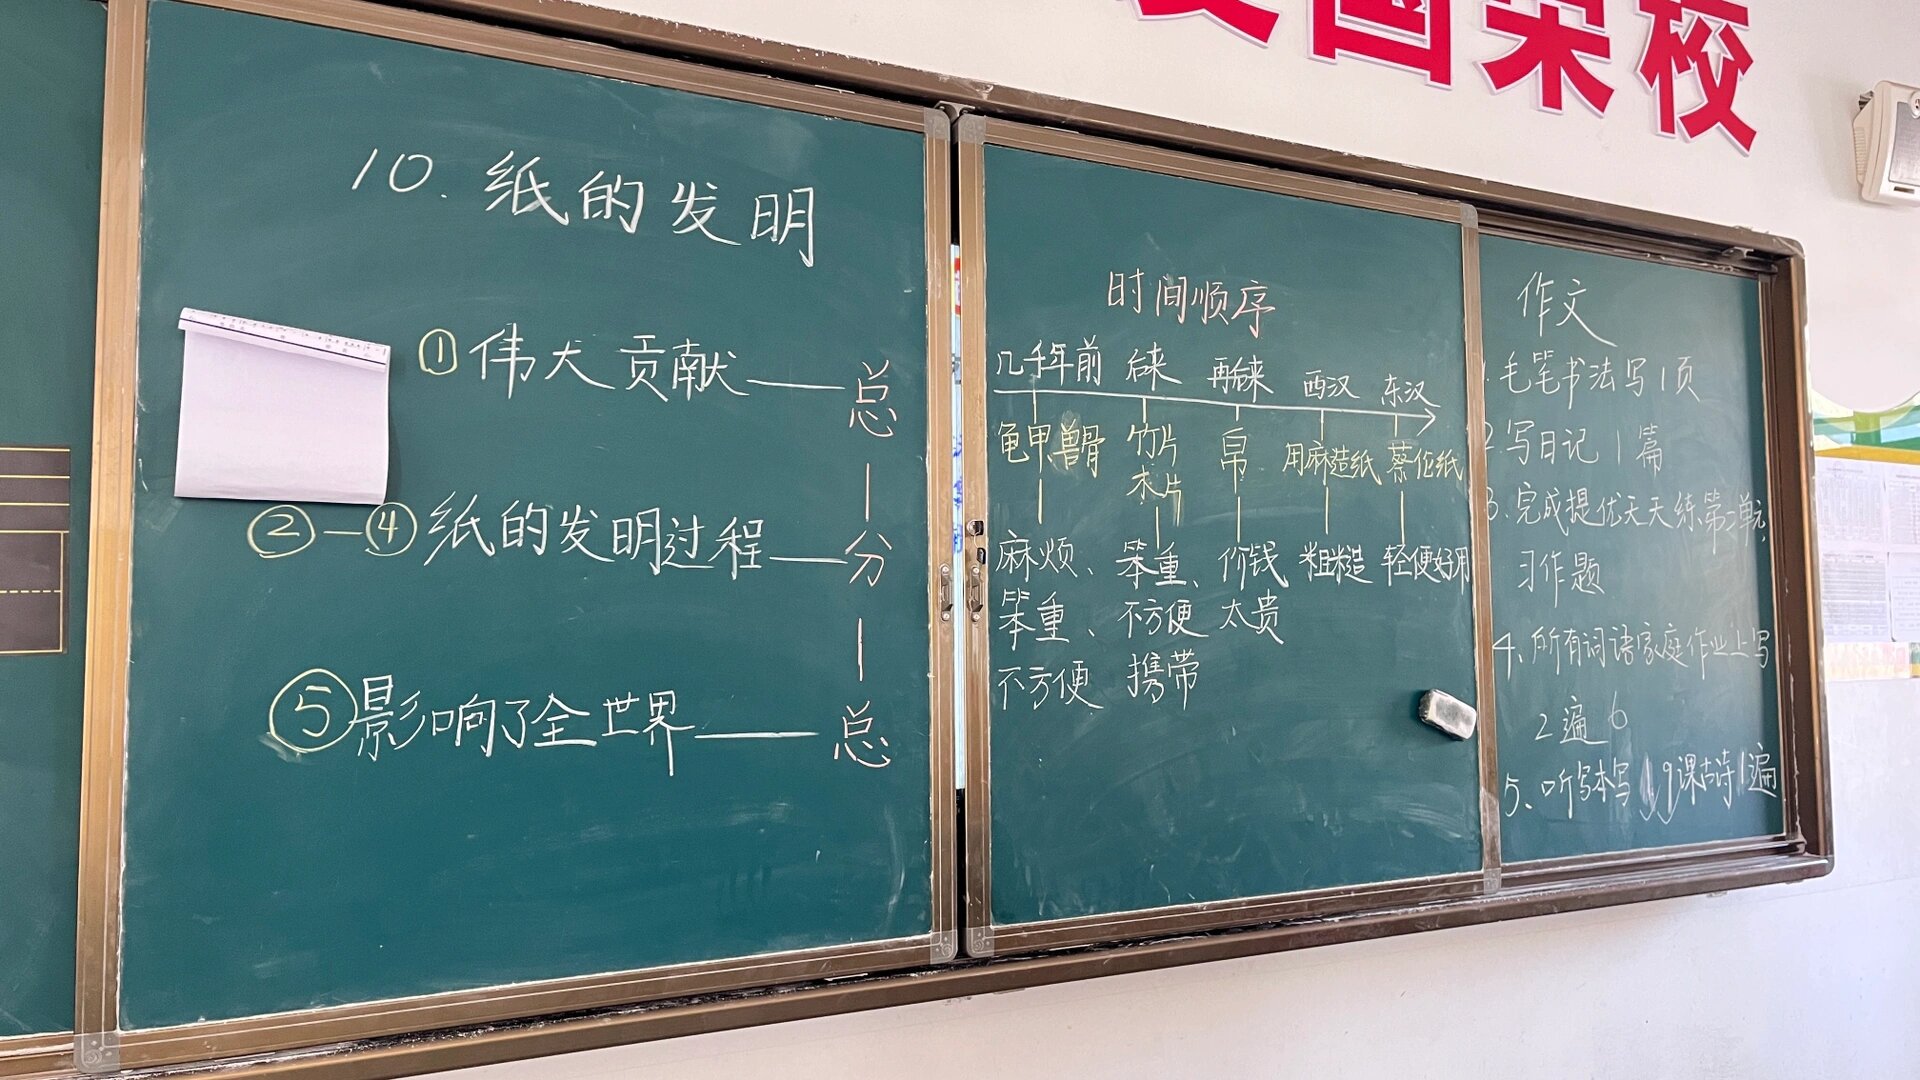 国荣校
10. 纸的发明
①伟大贡献——总
②—④纸的发明过程——分
⑤影响了全世界——总
时间顺序
几千年前 后来 再后来 西汉 东汉
龟甲、兽骨 竹片 帛 用麻造纸 蔡伦纸
木片
麻烦、 笨重、 价钱 粗糙 轻便好用
笨重、 不方便 太贵
不方便 携带
作文
1.毛笔书法写1页
2.写日记1篇
3.完成提优天天练第二单元
习作题
4、所有词语家庭作业上写
2遍
5、听写本写 9课古诗1遍